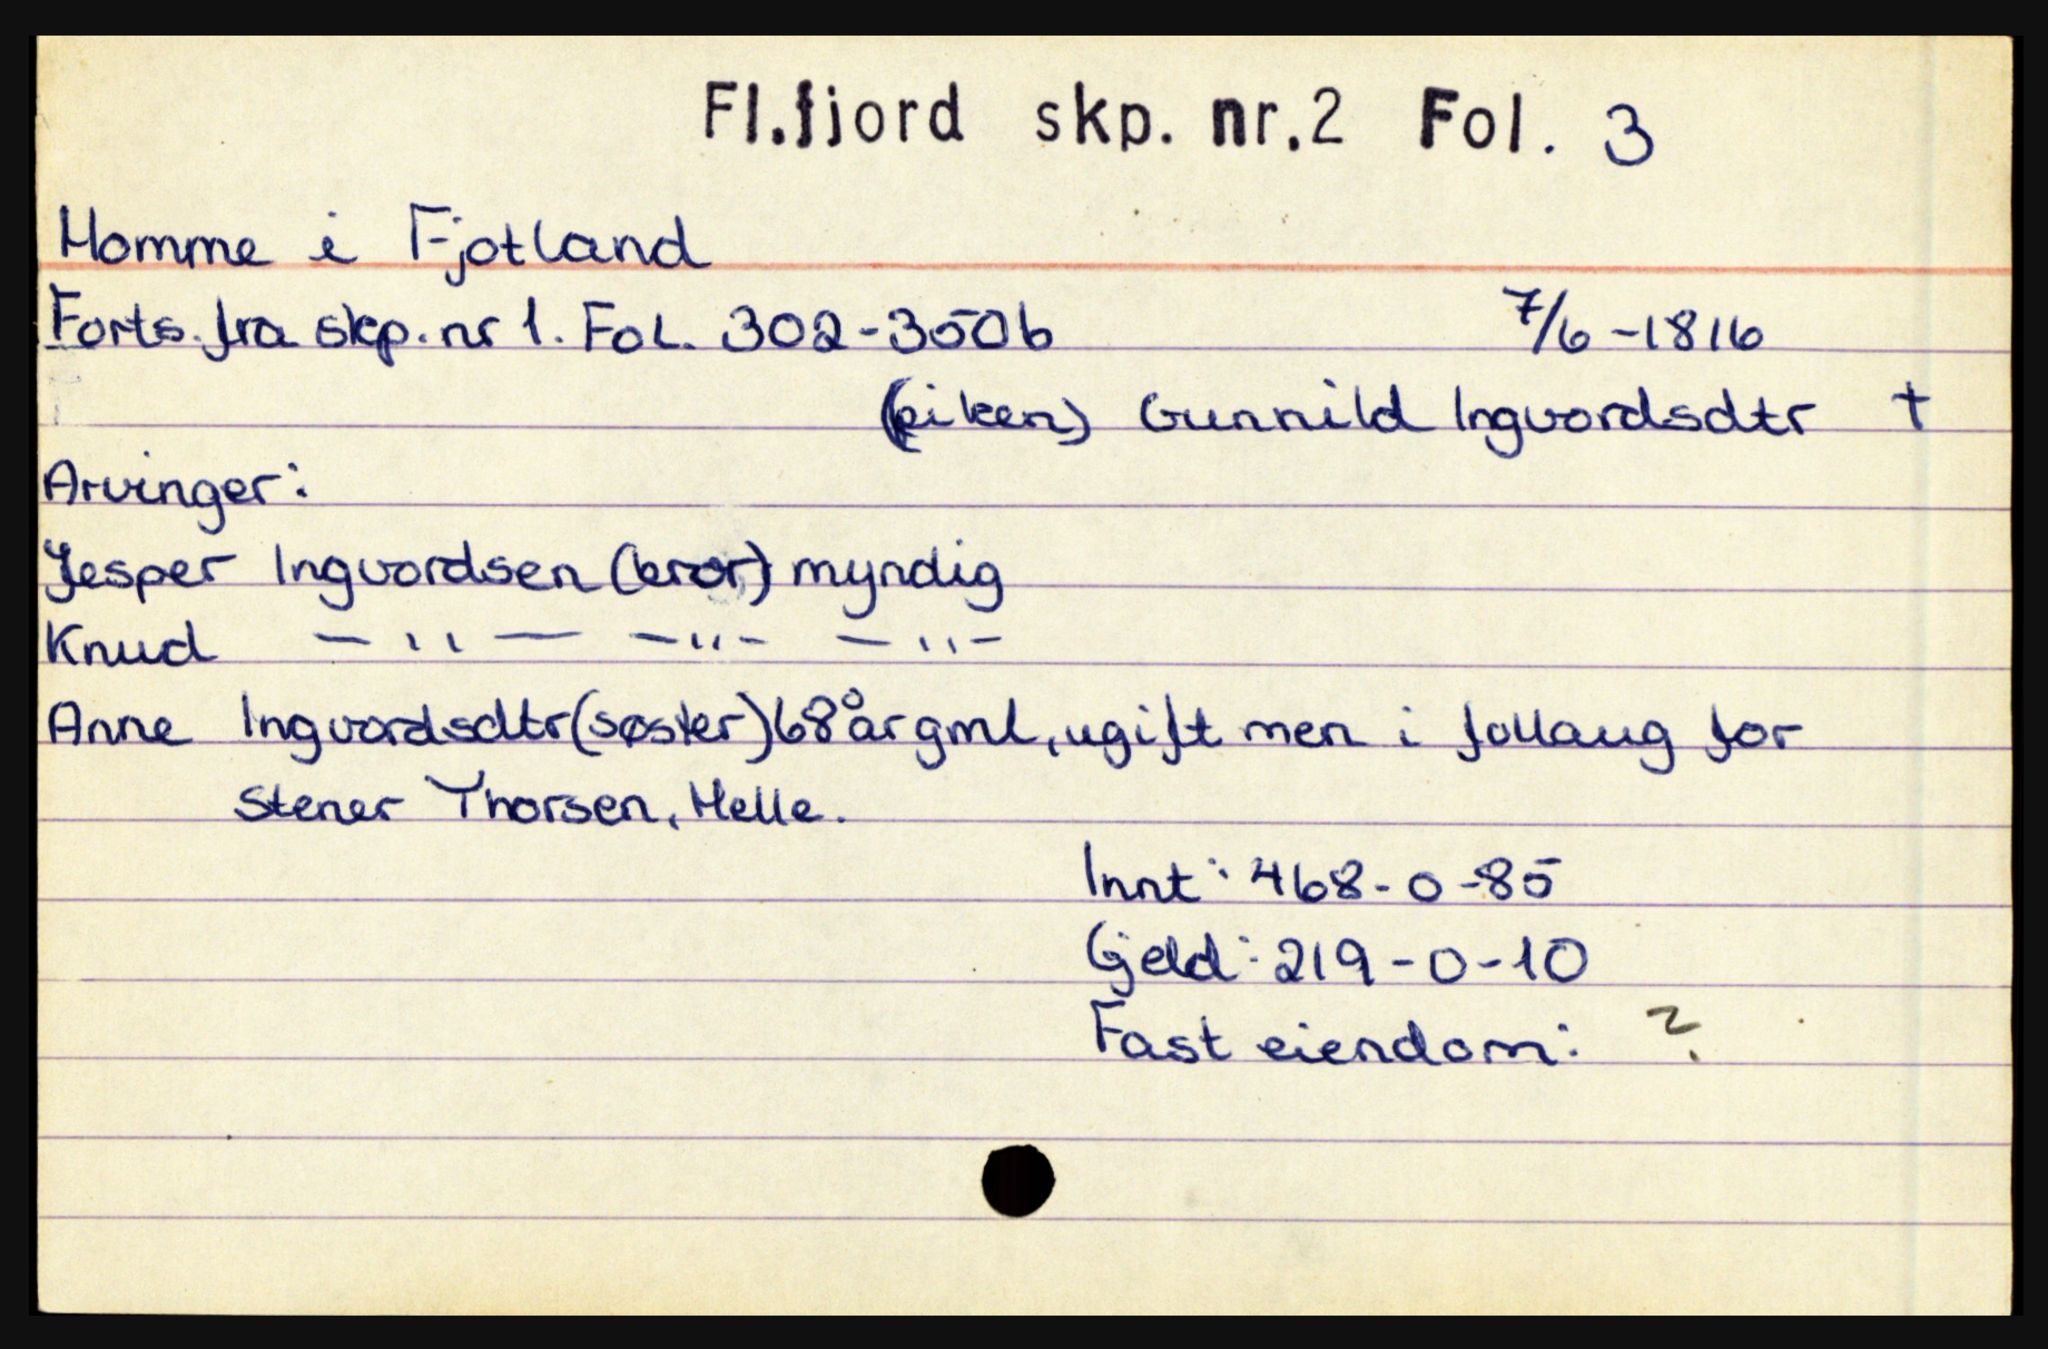 Fl.fjord skp. nr.2 Fol. 3
Homme i Fjotland
Forts. fra skp. nr 1. Fol. 302-350b 7/6-1816
(piken) Gunnild Ingvordsdtr †
Arvinger:
Jesper Ingvordsen (bror) myndig
Knud — " — - " - - " -
Anne Ingvordsdtr (søster) 68 år gml, ugift men i follaug for
Stener Thorsen, Helle.
Innt: 468-0-85
Gjeld: 219-0-10
Fast eiendom: ?